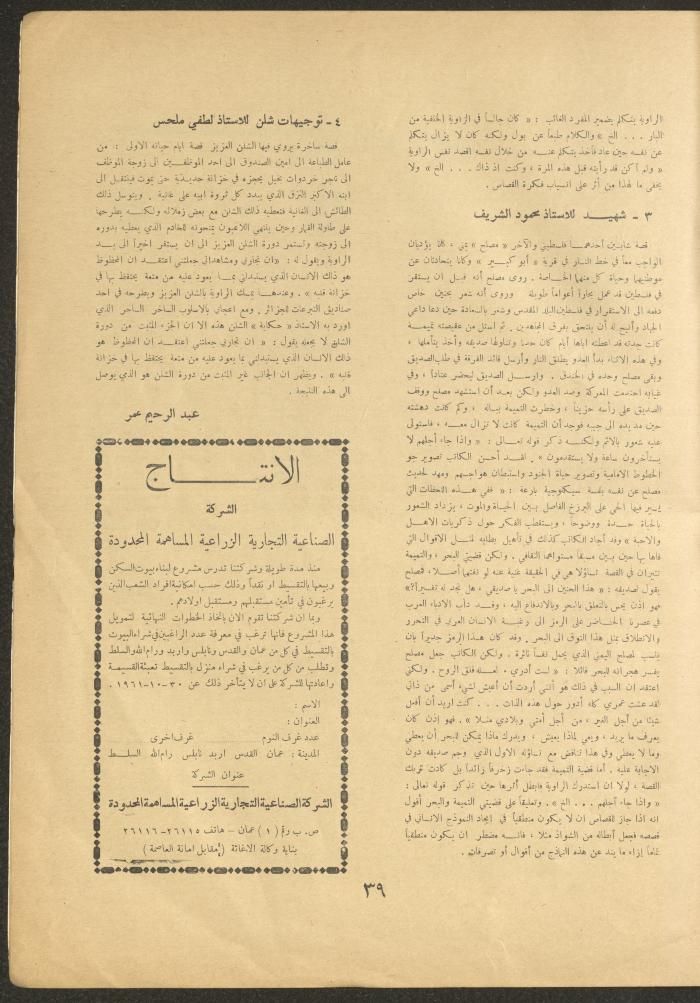 الراوية يتكلم بضمير المفرد الغائب : « كان جالساً في الزاوية الخلفية من
البار . . . الخ » والكلام طبعاً عن بول ولكنه كان لا يزال يتكلم
عن نفسه حين عاد فأخذ يتكلم عنه من خلال نفسه اقصد نفس الراوية
« ولم أكن قد رأيته قبل هذه المرة ، وكنت اذ ذاك . . . الخ » ولا
يخفى ما لهذا من أثر على انسياب فكرة القصاص .
٣ - شهيد للاستاذ محمود الشريف
قصة شابين أحدهما فلسطيني والآخر « مصلح » يمني ، كانا يؤديان
الواجب معاً في خط النار في قرية « أبو كبير » وكانا يتحادثان عن
موطنيهما وحياة كل منهما الخاصة . روى مصلح أنه قبل ان يستقر
في فلسطين قد عمل بحاراً أعواماً طويلة وروى أنه شعر بحنين خاص
دفعه الى الاستقرار في فلسطين البلد المقدس وشعر بالسعادة حين دعا داعي
الجهاد وأتيح له أن يلتحق بفرق المجاهدين . ثم استل من عقيصته تميمة
كانت جدته قد اعطته اياها أيام كان حدثا وتناولها صديقه وأخذ يتأملها ،
وفي هذه الاثناء بدأ العدو يطلق النار وأرسل قائد الفرقة في طلب الصديق
وبقي مصلح وحده في الخندق . وارسل الصديق ليحضر عتاداً ، وفي
غيابه احتدمت المعركة وصد العدو ولكن بعد أن استشهد مصلح ووقف
الصديق على رأسه حزيناً ، وخطرت التميمة بباله ، وكم كانت دهشته
حين مد يده الى جيبه فوجد أن التميمة كانت لا تزال معه ، فاستولى
عليه شعور بالاثم ولكنه ذكر قوله تعالى : « واذا جاء أجلهم لا
يستأخرون ساعة ولا يستقدمون » . لقد أحسن الكاتب تصوير جو
الخطوط الامامية وتصوير حياة الجنود واستبطان هواجسهم ومهد لحديث
مصلح عن نفسه بلفتة سيكلوجية بارعة : « ففي هذه اللحظات التي
يسير فيها الحي على البرزخ الفاصل بين الحياة والموت ، يزداد الشعور
بالحياة حدة ووضوحاً ، ويستقطب الفكر حول ذكريات الاهل
والاحبة » وقد أجاد الكاتب كذلك في تأهيل بطليه لمثل الاقوال التي
فاها بها حين بين مسبقاً مستواهما الثقافي . ولكن قضيتي البحر ، والتميمة
تثيران في القصة تساؤلا هي في الحقيقة غنية عنه لو نفتهما أصلا ، فمصلح
يقول لصديقه : « هذا الحنين الى البحر يا صديقي ، هل تجد له تفسيراً ؟»
فهو اذن يحس بالتعلق بالبحر وبالاندفاع اليه ، وقد دأب الادباء العرب
في عصرنا الحاضر على الرمز الى رغبة الانسان العربي في التحرر
والانطلاق بمثل هذا التوق الى البحر . وقد كان هذا الرمز جديراً بأن
ينسب لمصلح اليمني الذي يحمل نفساً ثائرة . ولكن الكاتب جعل مصلح
يفسر هجرانه للبحر قائلا : « لست أدري . لعله قلق الروح . ولكني
اعتقد ان السبب في ذلك هو أنني أردت أن أعيش لشيء أسمى من ذاتي
لقد عشت عمري كله أدور حول هذه الذات . . . كنت اريد أن أفعل
شيئا من أجل الغير ، من أجل أمتي وبلادي مثلا » . فهو اذن كان
يعرف ما يريد ، ويعي لماذا يعيش ، ويدرك ماذا يمكن للبحر أن يعطي
وما لا يعطي وفي هذا تناقض مع تساؤله الاول الذي وجم صديقه دون
الاجابة عليه . أما قضية التميمة فقد جاءت زخرفاً زائداً بل كادت تربك
القصة ، لولا ان استدرك الراوية فأبطل أثرها حين تذكر قوله تعالى :
« واذا جاء أجلهم . . . الخ » . وتعليقاً على قضيتي التميمة والبحر أقول
انه اذا جاز للقصاص ان لا يكون منطقياً في ايجاد النموذج الانساني في
قصصه فجعل أبطاله من الشواذ مثلا ، فانه مضطر ان يكون منطقياً
تماماً إزاء ما يند عن هذه النماذج من أقوال أو تصرفات .
٤ - توجيهات شلن للاستاذ لطفي ملحس
قصة ساخرة يروي فيها الشلن العزيز قصة ايام حياته الاولى : من
عامل الطباعة الى امين الصندوق الى احد الموظفين الى زوجة الموظف
الى تاجر خردوات بخيل يحجزه في خزانة حديدية حتى يموت فينتقل الى
ابنه الاكبر النزق الذي يبدد كل ثروة ابيه على غانية . ويتوسل ذلك
الطائش الى الغانية فتعطيه ذلك الشلن مع بعض زملائه ولكنه يطرحها
على طاولة القمار وحين ينتهي اللاعبون يمنحونه للخادم الذي يعطيه بدوره
الى زوجته وتستمر دورة الشلن العزيز الى ان يستقر اخيراً الى يد
الراوية ويقول له : «ان تجاربي ومشاهداتي جعلتني اعتقد ان المحظوظ
هو ذلك الانسان الذي يستبدلني بما يعود عليه من متعة يحتفظ بها في
خزانة قلبه » . وعندها يمسك الراوية بالشلن العزيز ويطرحه في احد
صناديق التبرعات للجزائر . ومع اعجابي بالاسلوب الساخر الساحر الذي
اورد به الاستاذ « حكاية » الشلن هذه الا ان الجزء المثبت من دورة
الشلن لا يجعله يقول : « ان تجاربي جعلتني اعتقد ان المحظوظ هو
ذلك الانسان الذي يستبدلني بما يعود عليه من متعة يحتفظ بها في خزانة
قلبه » . ويظهر ان الجانب غير المثبت من دورة الشلن هو الذي يوصل
الى هذه النتيجة .
عبد الرحيم عمر
الانتاج
الشركة
الصناعية التجارية الزراعية المساهمة المحدودة
منذ مدة طويلة وشركتنا تدرس مشروع لبناء بيوت السكن
وبيعها بالتقسيط او نقداً وذلك حسب امكانية افراد الشعب الذين
يرغبون في تأمين مستقبلهم ومستقبل اولادهم .
وبما ان شركتنا تقوم الان باتخاذ الخطوات النهائية لتمويل
هذا المشروع فانها ترغب في معرفة عدد الراغبين في شراء البيوت
بالتقسيط في كل من عمان والقدس ونابلس واربد ورام الله والسلط
وتطلب من كل من يرغب في شراء منزل بالتقسيط تعبئة القسيمة
واعادتها للشركة على ان لا يتأخر ذلك عن ٣٠-١٠-١٩٦١ .
الاسم :
العنوان :
عدد غرف النوم غرف اخرى
المدينة : عمان القدس اربد نابلس رام الله السلط
عنوان الشركة
الشركة الصناعية التجارية الزراعية المساهمة المحدودة
ص . ب رقم ( ١ ) عمان - هاتف ٢٦١١٥-٢٦١١٦
بناية وكالة الاغاثة ( مقابل امانة العاصمة )
٣٩